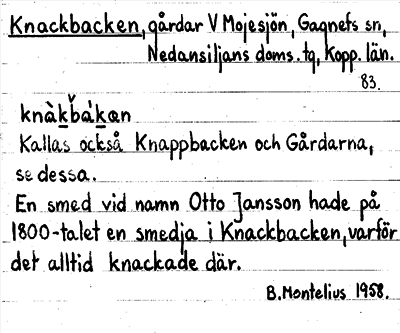 Knackbacken, gårdar V Mojesjön, Gagnefs sn,
Nedansiljans doms. tg, Kopp. län.
83.
knàk̬bákan
Kallas också Knappbacken och Gårdarna,
se dessa.
En smed vid namn Otto Jansson hade på
1800-talet en smedja i Knackbacken, varför
det alltid knackade där.
B. Montelius 1958.